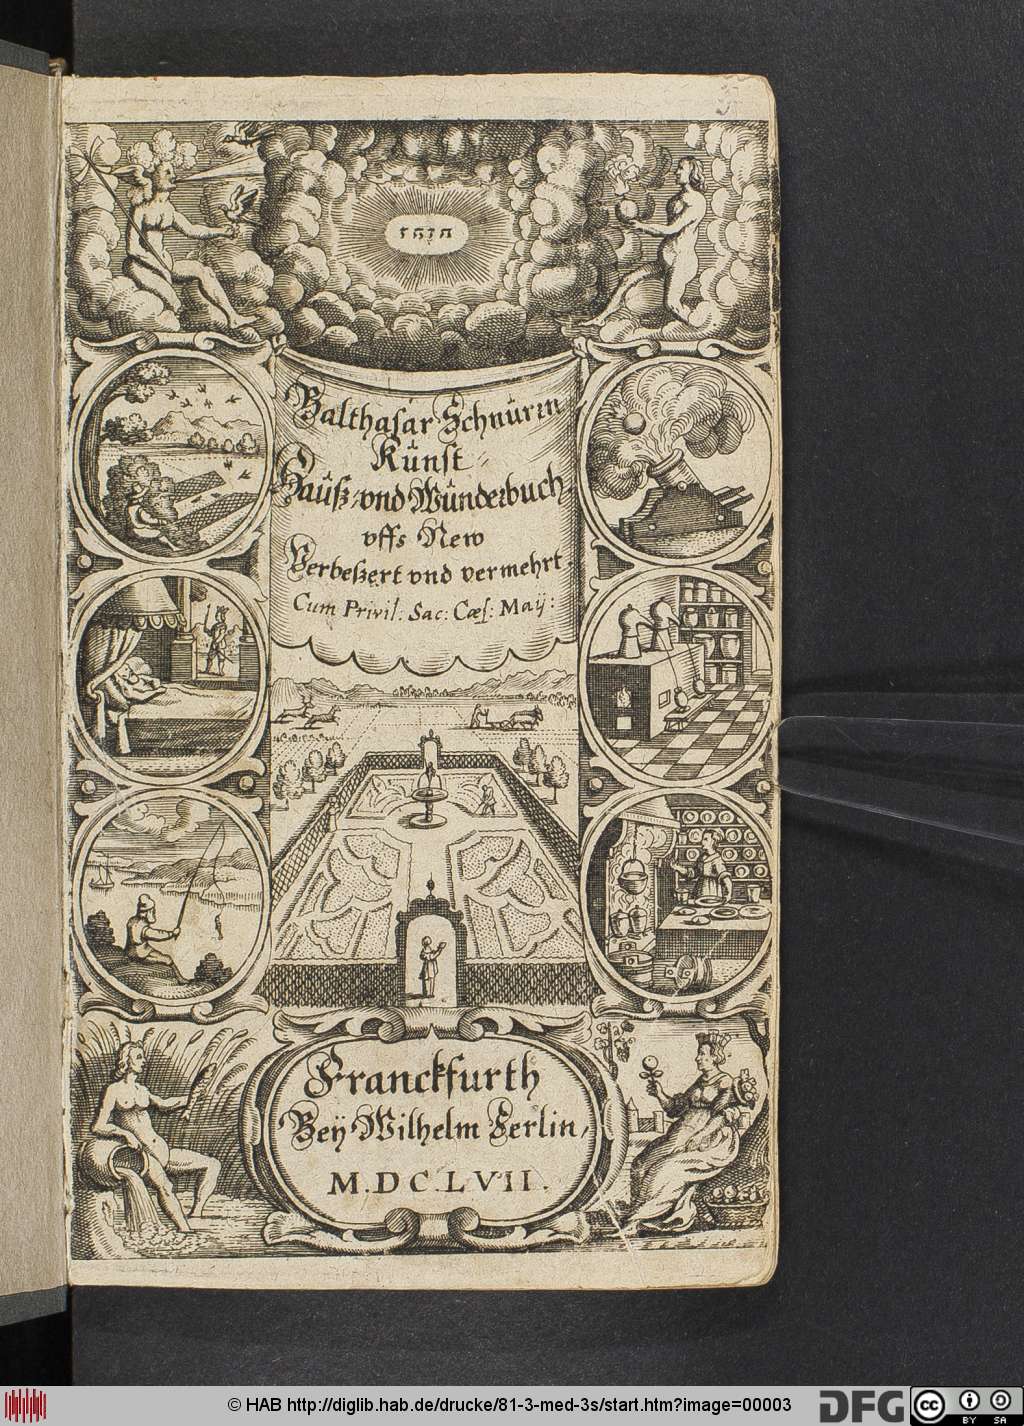 Balthasar Schnürrn
Künst-
Haüß- vnd Wünderbuch
vffs New
Verbeßert vnd vermehrt.
Cum Privil: Sac: Cæs: Maÿ:
Franckfurth
Beÿ Wilhelm Serlin,
M.DC.LVII.
© HAB http://diglib.hab.de/drucke/81-3-med-3s/start.htm?image=00003
DFG
cc
BY SA